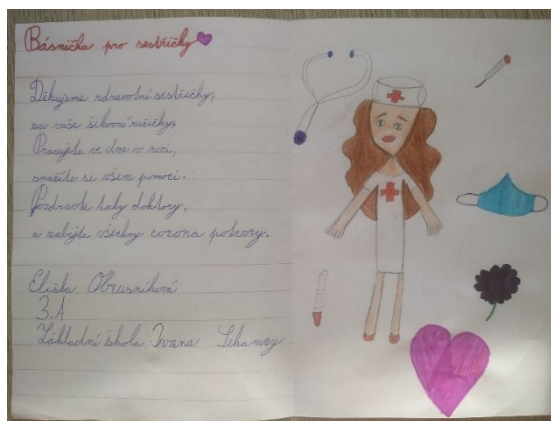 Básnička pro sestřičky
Děkujeme zdravotní sestřičky,
za vaše šikovné ručičky.
Pracujete ve dne v noci,
snažíte se všem pomoci.
Pozdravte taky doktory,
a zabijte všechny corona potvory.
Eliška Obrusníková
3.A
Základní škola Ivana Sekaniny